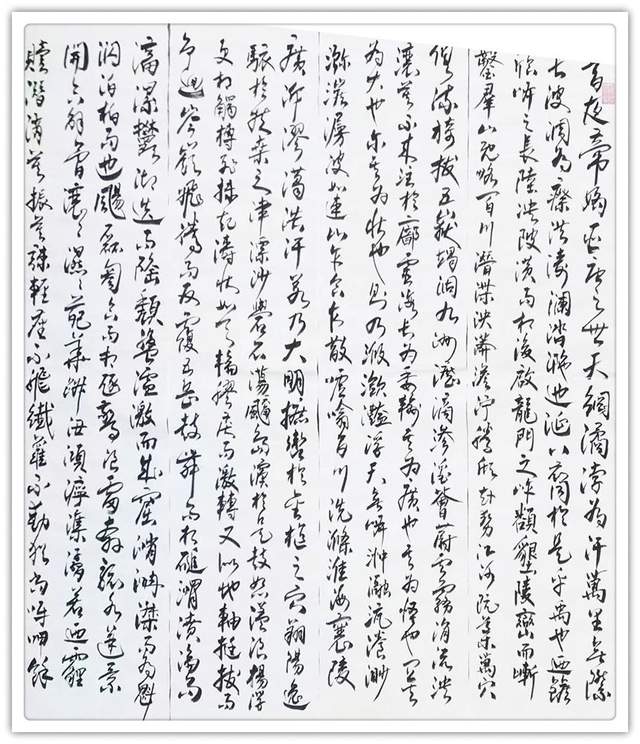 昔在帝媯巨唐之世天綱潏浡為汗萬里無際
長波凋為瘵洪濤瀾涾𣶏迤涎八裔於是乎禹也迺鏟
臨岸之阜陸決陂潢而相沷啟龍門之岝嶺墾陵巒而嶄
鑿群山既略百川潛渫泱漭澹濘騰波赴勢江河既導萬穴
俱流掎拔五嶽竭涸九州瀝滴滲淫薈蔚雲霧涓流泱
瀼莫不來注於廓靈海長為委輸其為廣也其為怪也宜其
為大也爾其為狀也則乃浟湙瀲灩浮天無岸浺瀜沆瀁渺
瀰湠漫波如連山乍合乍散噓噏百川洗滌淮汝襄陵
廣舄膠漻浩汗若乃大明攠轡於金樞之穴翔陽逸
駭於扶桑之津彯沙礐石蕩颺島濱於是鼓怒溢浪揚浮
更相觸搏飛沫起濤狀如天輪膠戾而激轉又似地軸挺拔而
爭迴岑嶺飛騰而反覆五嶽鼓舞而相磓㵢濆淪而
滀漯鬱沏迭而隆頹盤盓激而成窟㴥㴸滐而為魁
㴋泊柏而迤颺磊匒匌而相豗驚浪雷奔駭水迸集
開合解會瀼瀼濕濕葩華踧沑澒濘潗㴔若迺霾
曀潛銷莫振莫竦輕塵不飛纖蘿不動猶尚呀呷餘